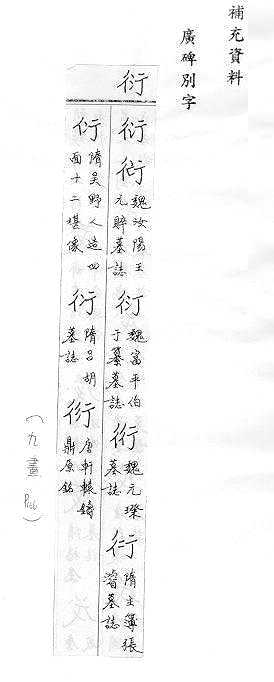 補充資料
廣碑別字
衍
衍
衍 魏汝陽王元賥墓誌
衍 魏富平伯于纂墓誌
衍 魏元璨墓誌
衍 隋主簿張濬墓誌
衍 隋吳野人造四面十二堪像
衍 隋呂胡墓誌
衍 唐軒轅鑄鼎原銘
(九畫)